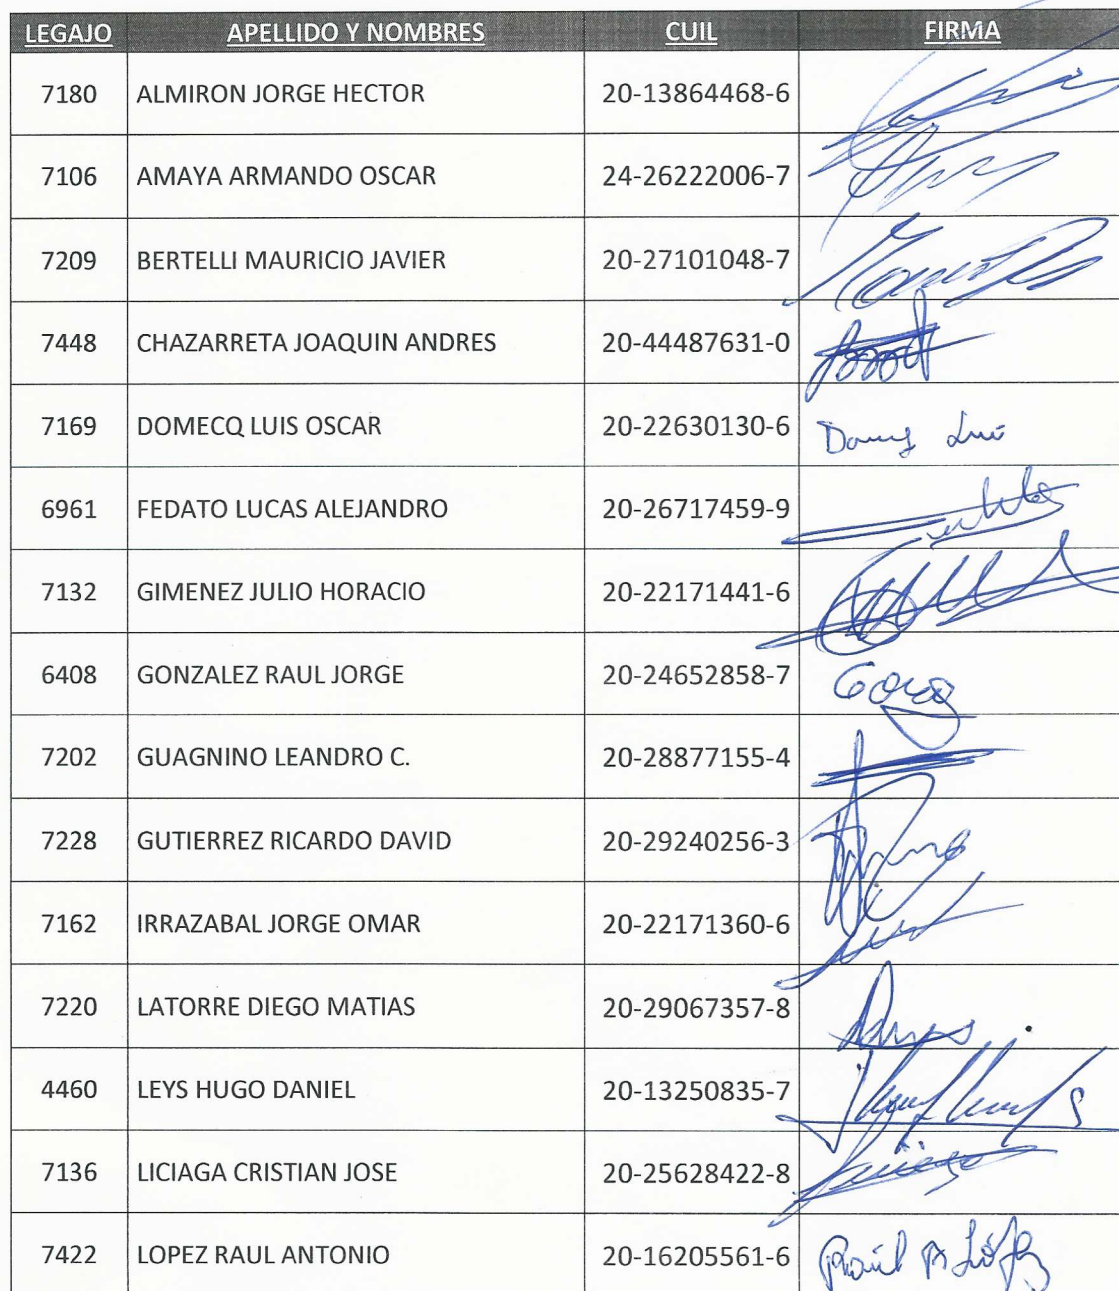 LEGAJO APELLIDO Y NOMBRES CUIL FIRMA
7180 ALMIRON JORGE HECTOR 20-13864468-6
7106 AMAYA ARMANDO OSCAR 24-26222006-7
7209 BERTELLI MAURICIO JAVIER 20-27101048-7
7448 CHAZARRETA JOAQUIN ANDRES 20-44487631-0
7169 DOMECQ LUIS OSCAR 20-22630130-6
6961 FEDATO LUCAS ALEJANDRO 20-26717459-9
7132 GIMENEZ JULIO HORACIO 20-22171441-6
6408 GONZALEZ RAUL JORGE 20-24652858-7
7202 GUAGNINO LEANDRO C. 20-28877155-4
7228 GUTIERREZ RICARDO DAVID 20-29240256-3
7162 IRRAZABAL JORGE OMAR 20-22171360-6
7220 LATORRE DIEGO MATIAS 20-29067357-8
4460 LEYS HUGO DANIEL 20-13250835-7
7136 LICIAGA CRISTIAN JOSE 20-25628422-8
7422 LOPEZ RAUL ANTONIO 20-16205561-6 Raúl A López